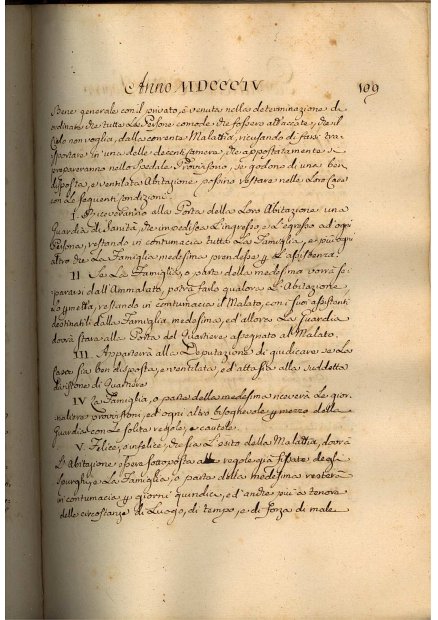 Anno MDCCCIV 109
bene generale con il privato, è venuta nella determinazione di
ordinare che tutte Le Persone comode, che fossero attaccate, che il
Cielo non voglia, dalla corrente Malattia, ricusando di farsi tra-
sportare in una delle decenti camere, che appostatamente si
prepareranno nello Spedale Provvisorio, se godono di una ben
disposta, e ventilata Abitazione, possino restare nelle Loro Case
con Le seguenti condizioni
I. Riceveranno alla Porta della Loro Abitazione una
Guardia di Sanità, che impedisca L'ingresso, e L'egresso ad ogni
Persona, restando in contumacia tutta La Famiglia,
altro che La Famiglia medesima prendesse per L'assistenza.
II Se La Famiglia, o parte della medesima vorrà se-
pararsi dall'Ammalato, potrà farlo qualora L'Abitazione
Lo permetta, restando in contumacia il Malato, con i suoi assistenti
destinatili dalla Famiglia medesima, ed allora La Guardia
dovrà stare alla Porta del Quartiere assegnato al Malato.
III. Apparterrà alla Deputazione di giudicare se La
Casa sia ben disposta, e ventilata, ed atta sia alla suddetta
divisione di Quartiere
IV La Famiglia, o parte della medesima riceverà Le gior-
naliere provvisioni, ed ogni altro bisognevole per mezzo della
Guardia con Le solite regole, e cautele.
V. Felice, o infelice, che sia L'esito della Malattia, dovrà
L'Abitazione essere sottoposta alle regole già fissate degli
Spurghi, e La Famiglia, o parte della medesima resterà
in contumacia per giorni quindici, ed anche più a tenore
delle circostanze di Luogo, di tempo, e di forza di male